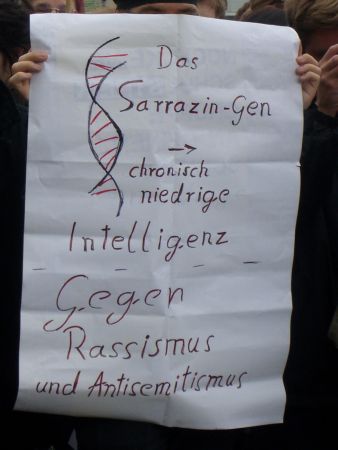 Das
Sarrazin-Gen
→ chronisch
niedrige
Intelligenz
Gegen
Rassismus
und Antisemitismus